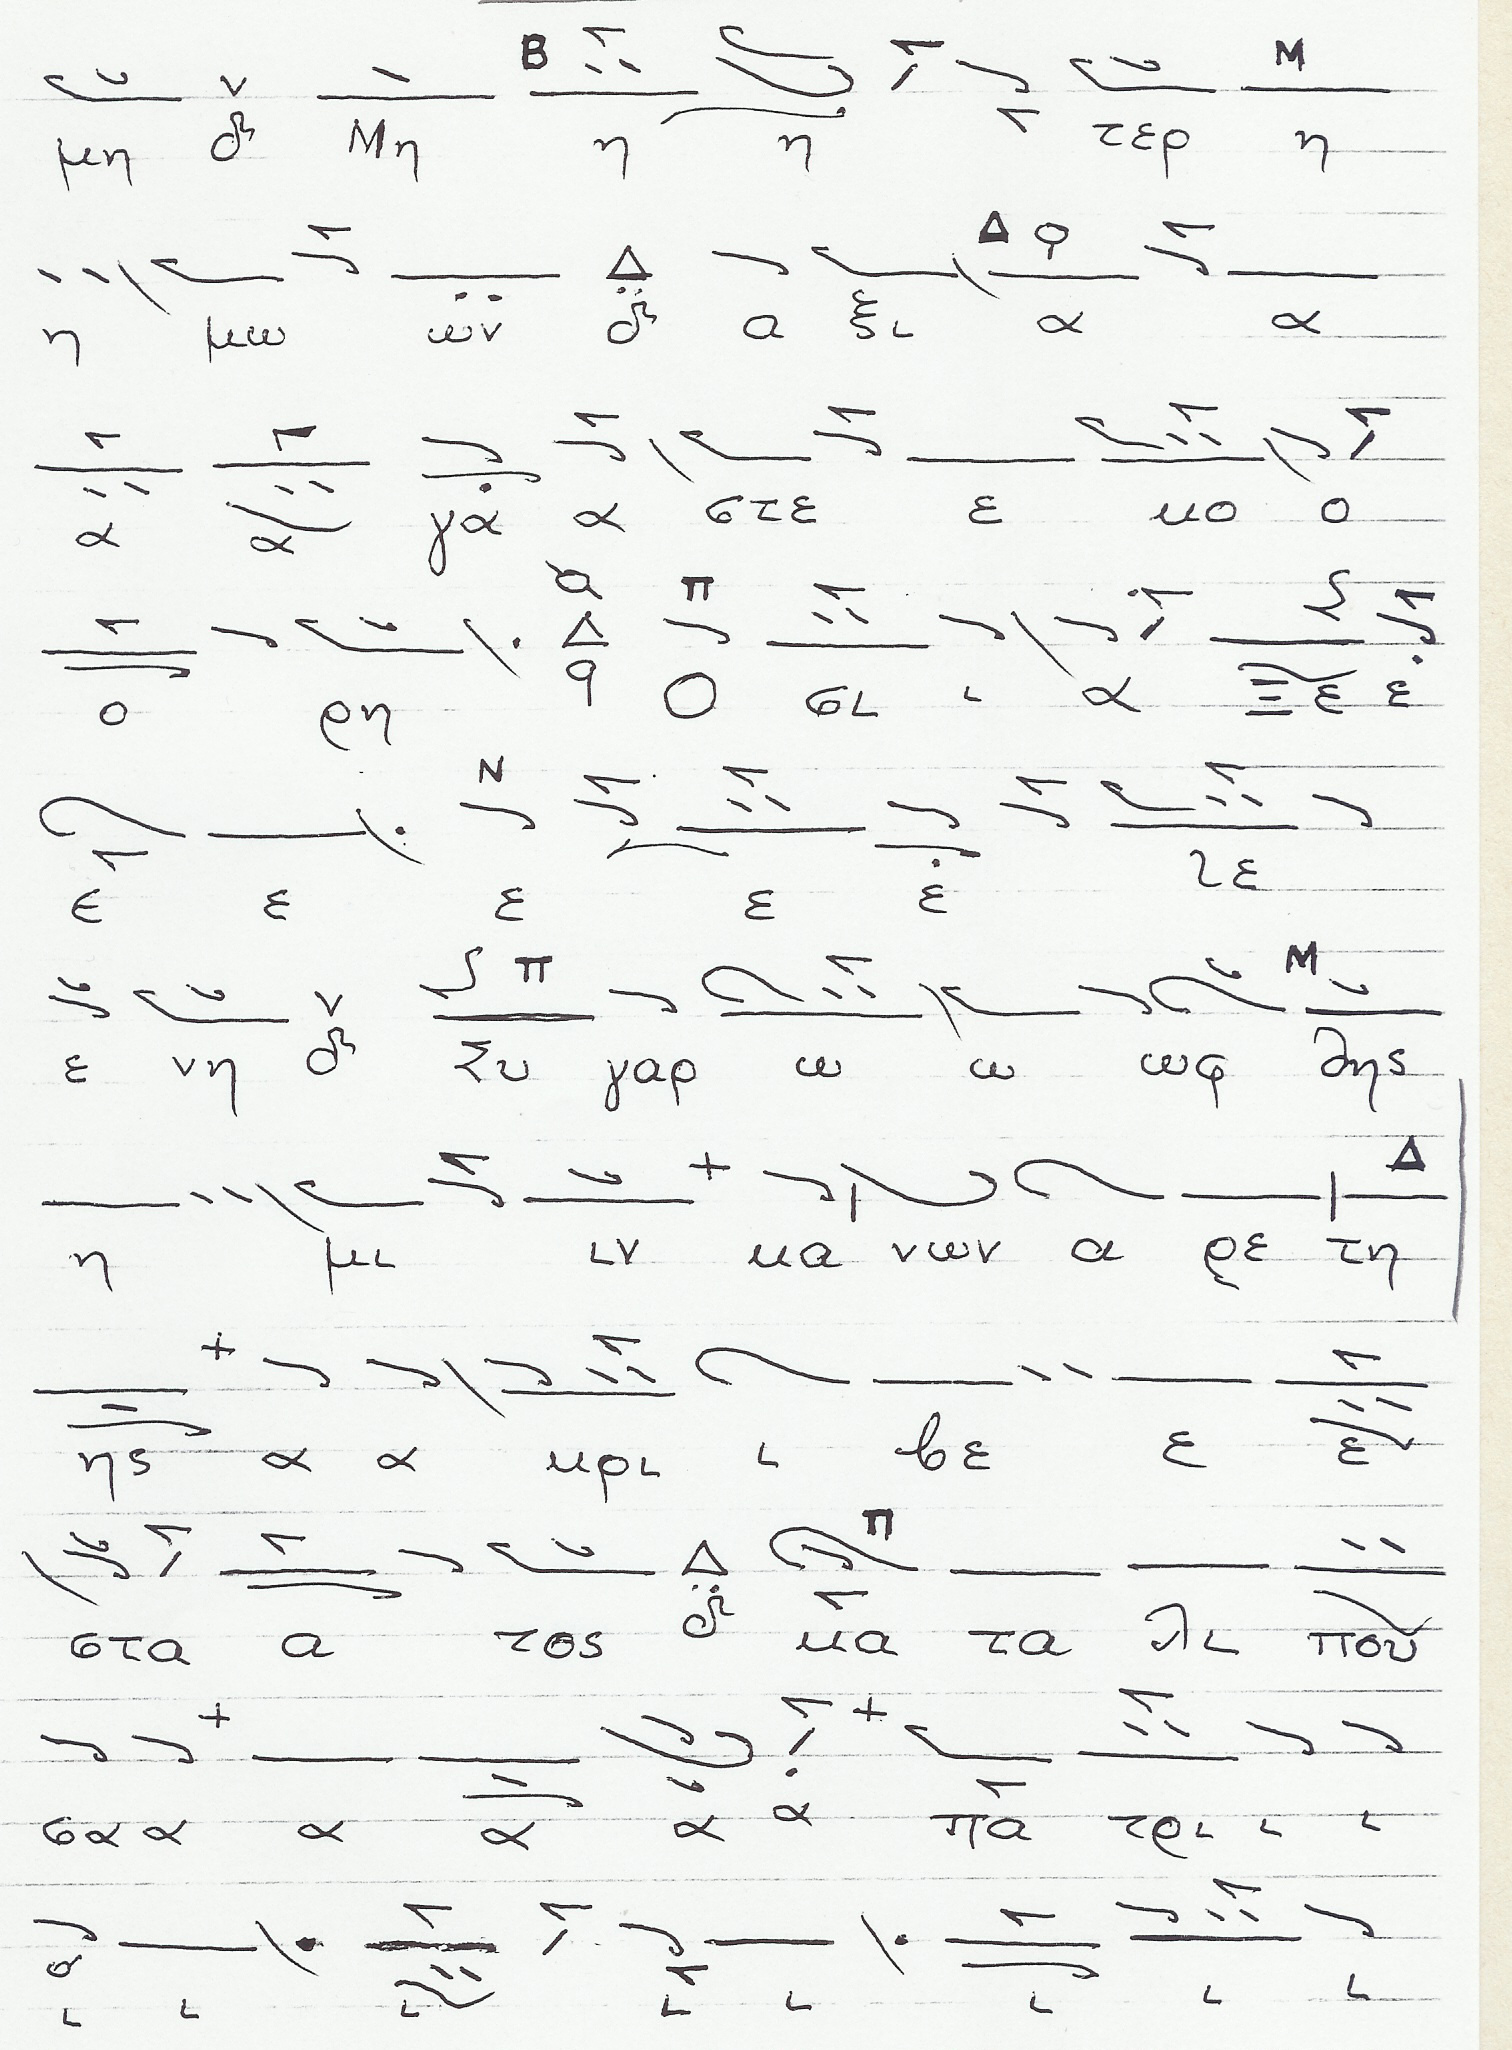 Β Μ
μη Μη η η τερ η
Δ
η μω ων α ξι α α
α α γα α στε ε κο ο
Π
ο ρη Ο σι ι α Ξε ε
Ν
ε ε ε ε ε λε
Π Μ
ε νη Συ γαρ ω ω ωφ θης
Δ
η μι ιν κα νων α ρε τη
ης α α κρι ι βε ε ε
Π
στα α τος κα τα λι που
σα α α α α α πα τρι ι ι
ι ι ι ι ι ι ι ι